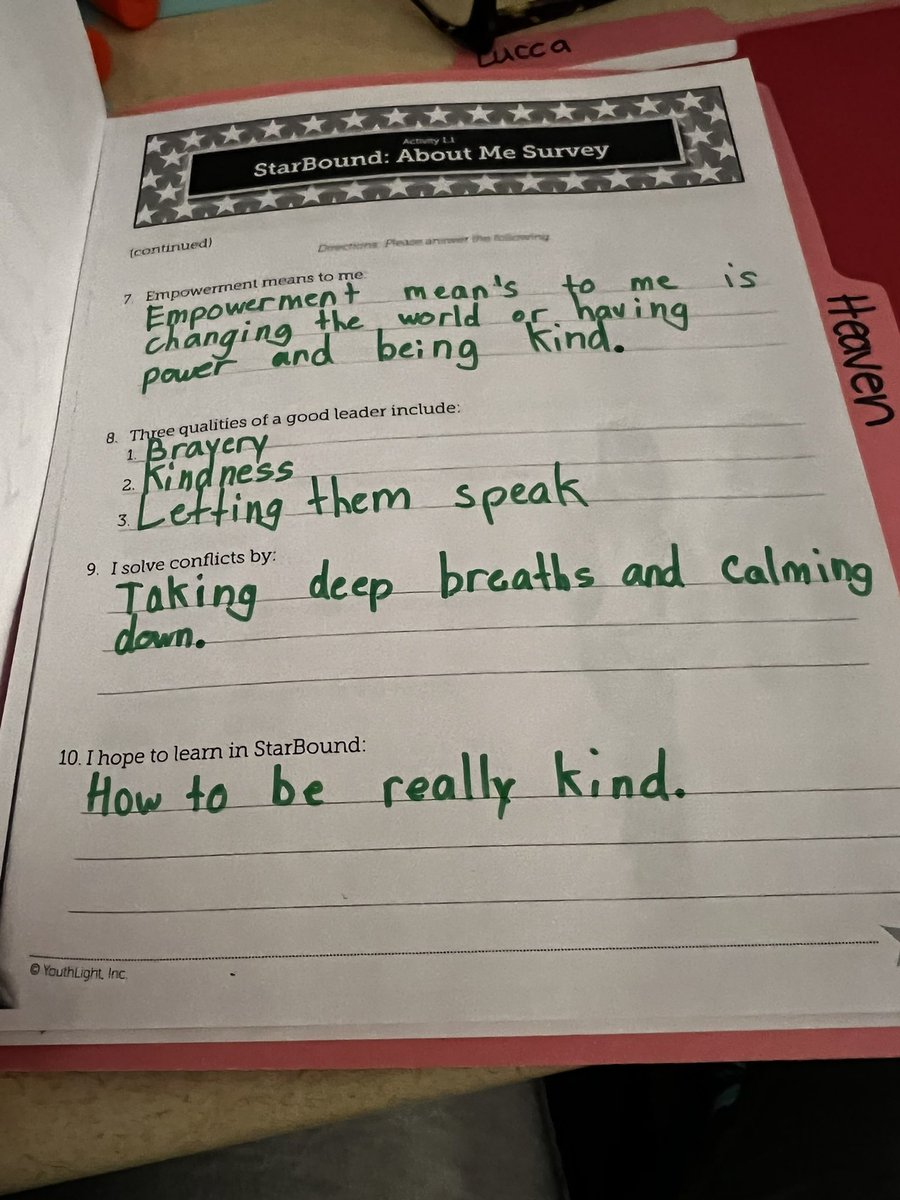 Lucca
Activity 1.1
StarBound: About Me Survey
(continued)
Directions: Please answer the following
7. Empowerment means to me:
Empowerment mean's to me is
changing the world or having
power and being kind.
Heaven
8. Three qualities of a good leader include:
1. Bravery
2. Kindness
3. Letting them speak
9. I solve conflicts by:
Taking deep breaths and calming
down.
10. I hope to learn in StarBound:
How to be really kind.
© YouthLight, Inc.